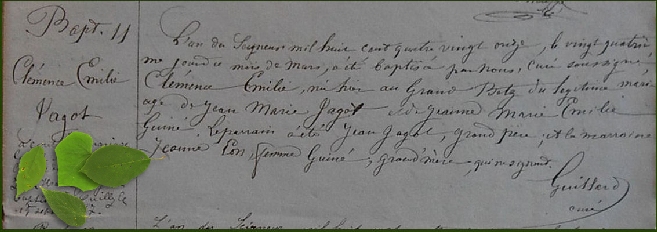 Bapt. 11
Clémence Emilie
Pagot
L'an du Seigneur mil huit cent quatre vingt onze, le vingt quatriè
me jour du mois de mars, a été baptisée par nous, curé soussigné,
Clémence Emilie, née hier au Grand Betz du légitime mari
age de Jean Marie Pagot et de Jeanne Marie Emilie
Guiné, le parrain a été Jean Pagot, grand père, et la marraine
Jeanne Pon, femme Guiné, grand'mère, qui
Guillard
curé
L'an du Seigneur mil huit